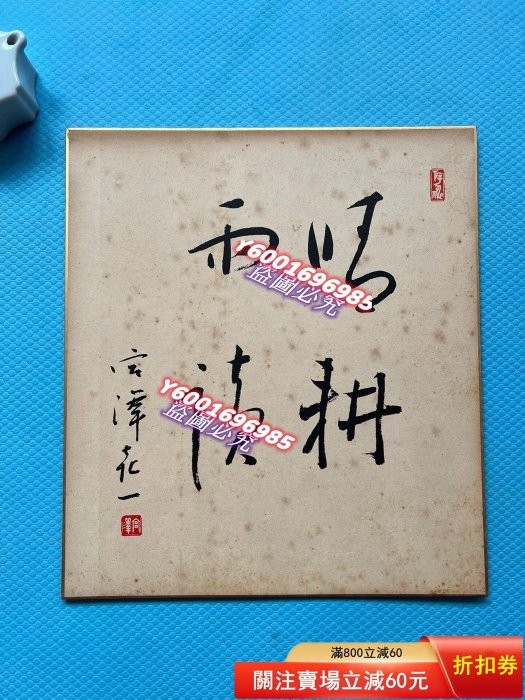 晴耕
雨讀
宮澤喜一
宮澤
Y6001696985
盜圖必究
Y6001696985
盜圖必究
滿800立減60
關注賣場立減60元
折扣券